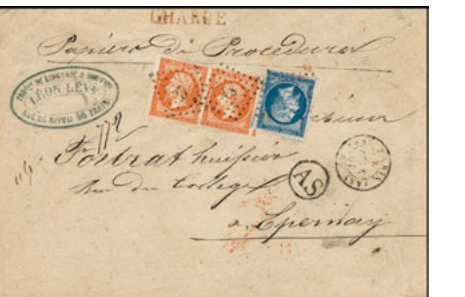 CHARGÉ
Papiers de Procédures
LÉON LÉVY
RUE DE RIVOLI 50 PARIS
Monsieur
Fortrat huissier
Rue du Collège
AS
à Epernay